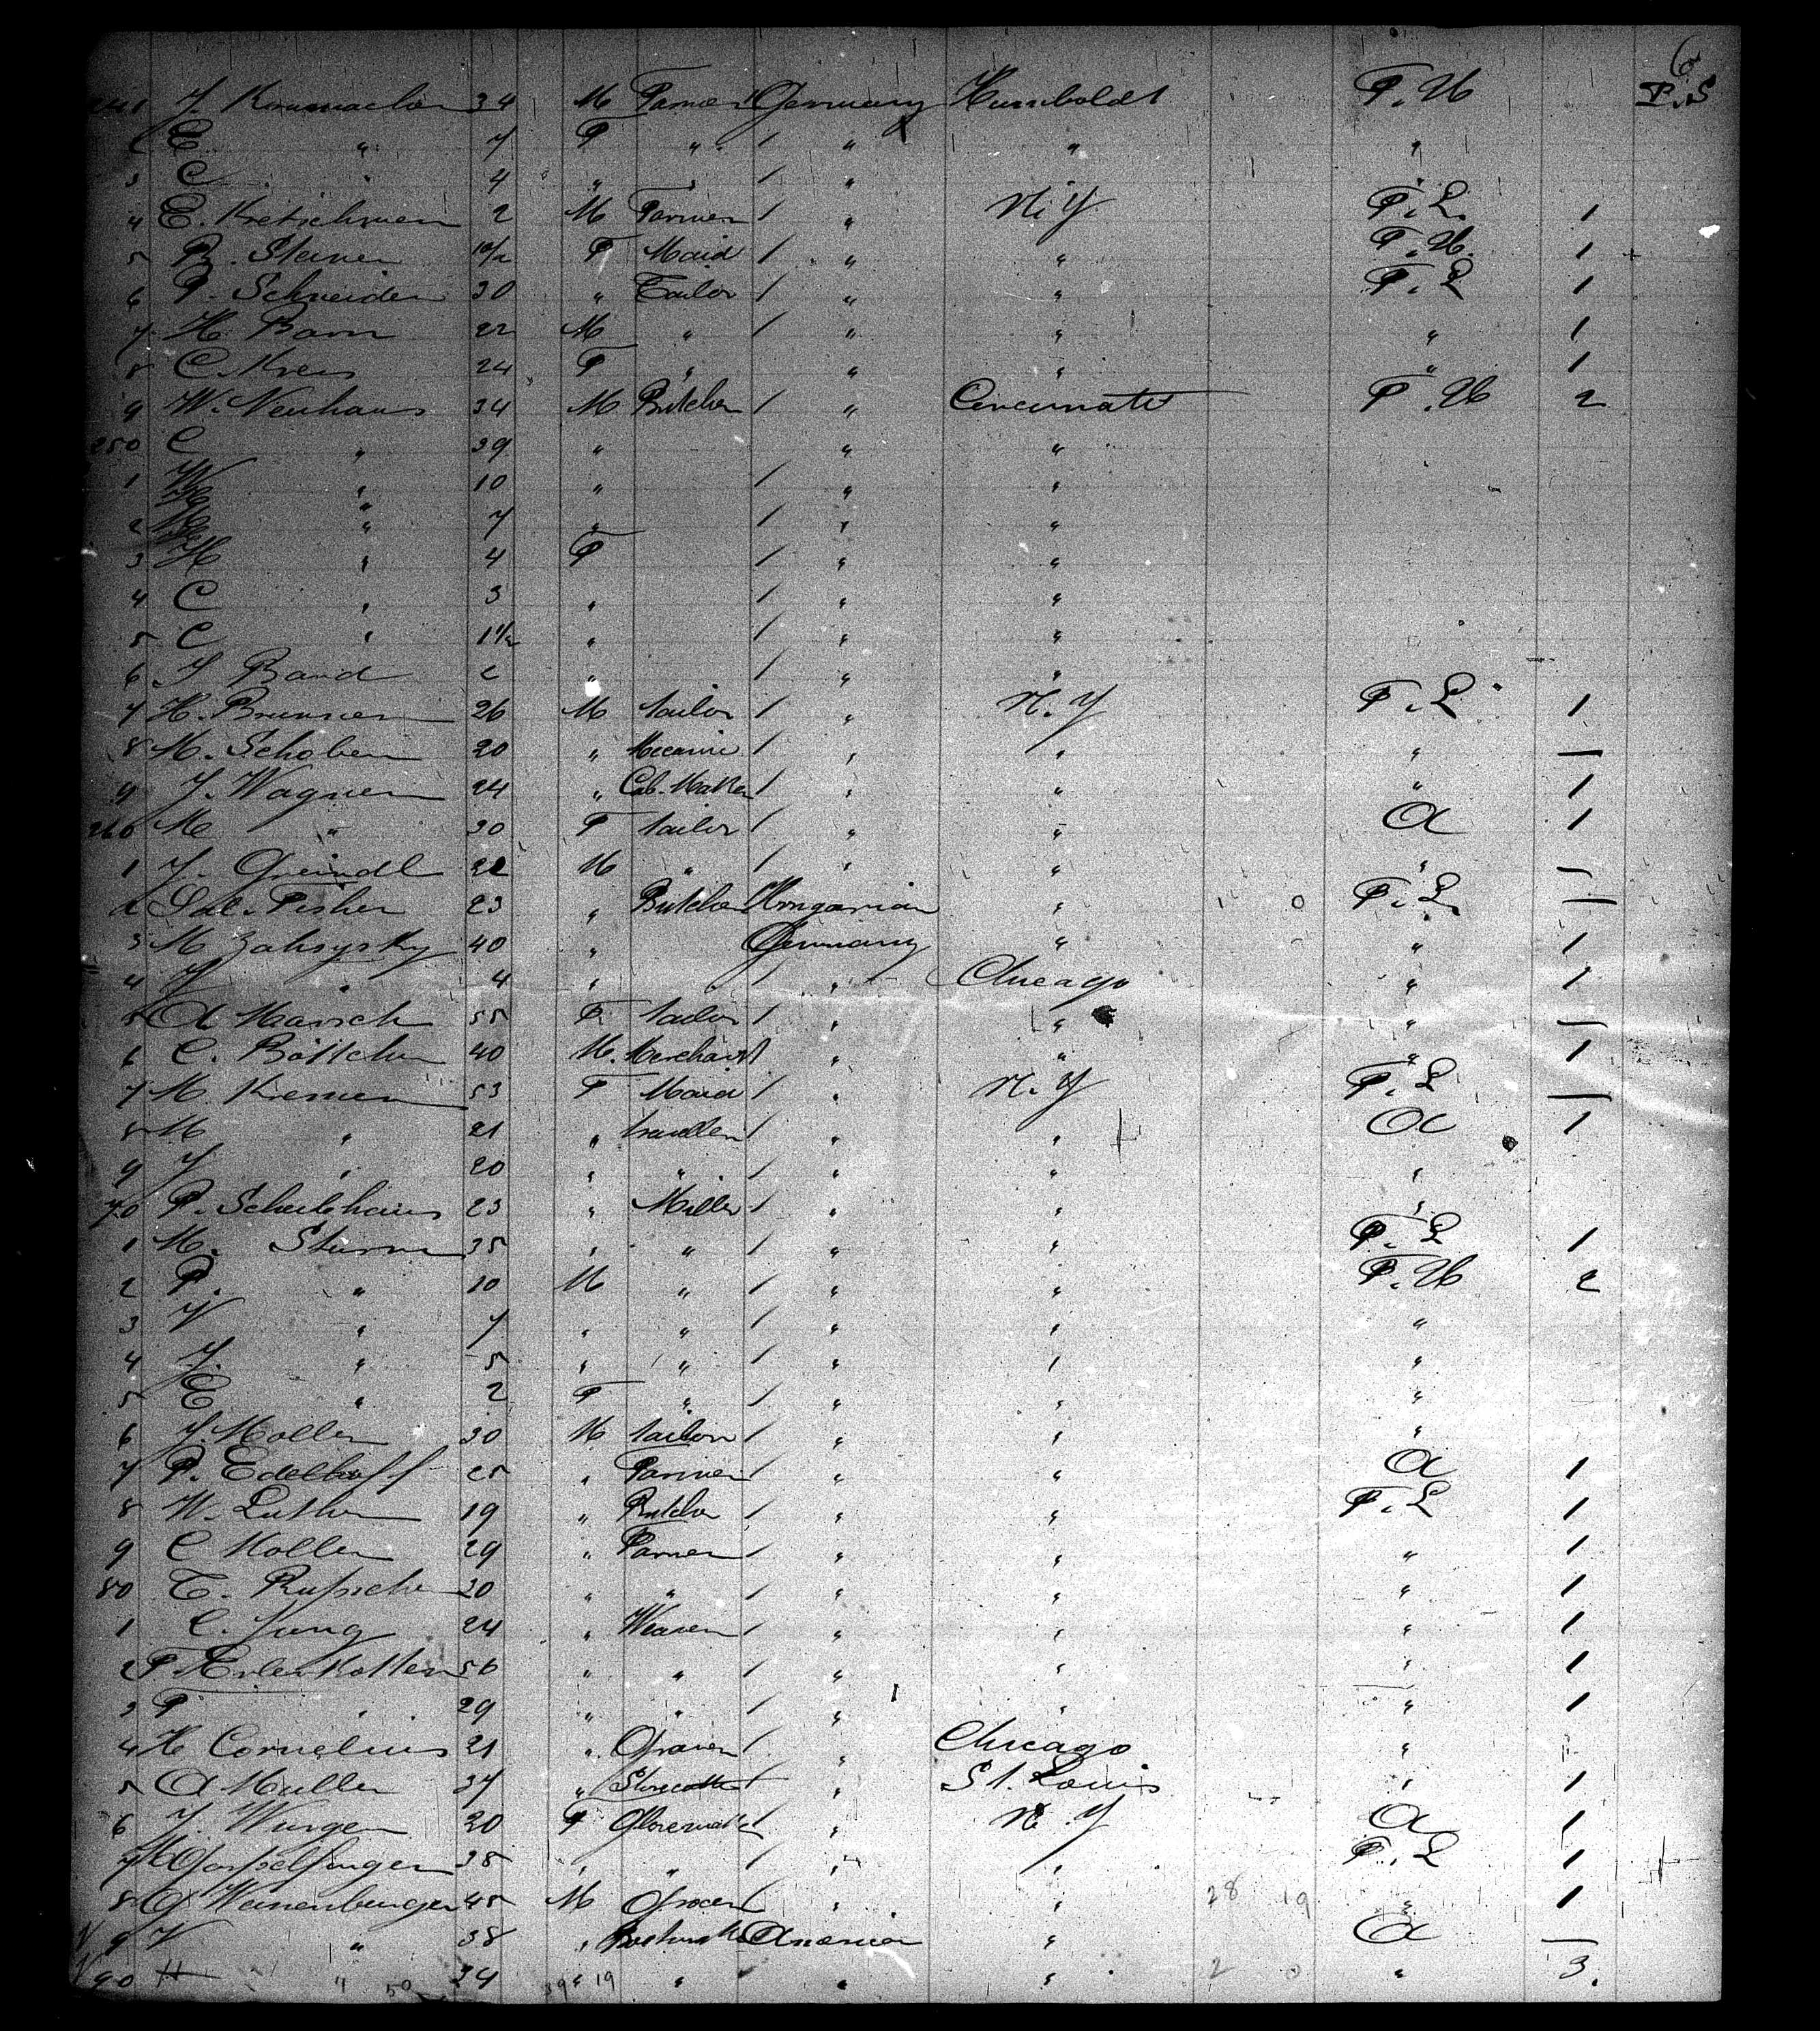 6
241 J. Krumacher 34 M Farmer / Germany Humboldt F. U P.S
2 E " 7 F " / " " "
3 C " 4 " " / " " "
4 E. Kretschmer 2 M Farmer / " N.Y F. L. 1
5 B. Steiner 10/12 F Maid / " " F. U. 1
6 P. Schneider 30 " Tailor / " " F. L 1
7 H. Barn 22 M " / " " " 1
8 C. Kreis 24 F " " " " 1
9 W. Neuhaus 34 M Butcher / " Cincinnati F. U 2
250 C " 39 " " "
1 W " 10 " / " "
2 " 7 " / " "
3 H " 4 F / " "
4 C " 3 " / " "
5 C " 11/12 " / " "
6 J Band " / " "
7 H. Brunner 26 M tailor / " N.Y F. L 1
8 M. Schober 20 " Mecanic / " " " —
9 J. Wagner 24 " Cab. Maker / " " " 1
260 M " 30 F tailor / " " A 1
1 J. Greindl 22 M " / " " " —
2 Sal. Fisher 23 " Butcher Hongarian " 0 F. L. —
3 M Zahsysky 40 " Germany " " 1
4 J " 4 " / " Chicago " 1
5 A Marsch 55 F tailor / " " " —
6 C. Böttcher 40 M. Merchant / " " " 1
7 M Kremer 53 F Maid / " N. Y F. L —
8 M " 21 " / " " A 1
9 J " 20 " " / " " "
70 P. Scheibhaus 23 " Miller / " " "
1 M. Sturm 35 " " / " " F. L 1
2 P. " 10 M " / " " F. U 2
3 V " 7 " " / " " "
4 J. " 5 " " / " " "
5 E " 2 F " / " " "
6 J. Moller 30 M tailor / " " "
7 P. Edelhoff 25 " Farmer / " " A 1
8 W. Luther 19 " Butcher / " " F. L 1
9 C Moller 29 " Farmer / " " " 1
80 T. Rutscher 20 " " / " " " 1
1 C. Jung 24 " Weaver / " " " 1
2 F Erlenkotter 56 " " / " " " 1
3 F " 29 " " / " " " 1
4 H Cornelius 21 " / " Chicago " 1
5 A Muller 34 " Stonecutter / " St. Louis " 1
6 J. Wurger 20 F / " N. Y A 1
7 38 " " / " " F. L 1
8 G Weinenburger 45 M Grocer / " " 28 19 " 1
9 V " 38 " American " A —
90 H " 50 34 " 39 19 " " " 2 0 " 3.